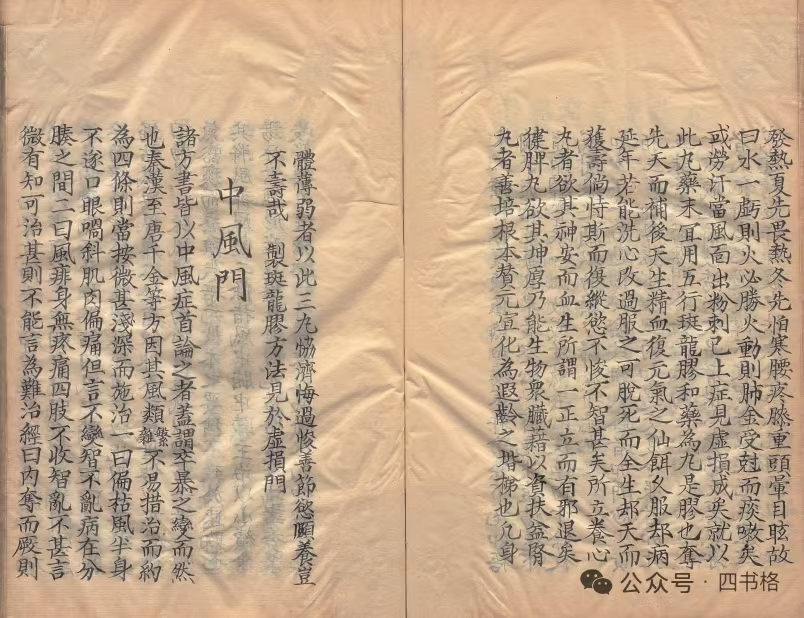 發熱夏先畏熱冬先怕寒腰疼膝重頭暈目眩故
曰水一虧則火必勝火動則肺金受尅而痰嗽矣
或勞汗當風面出粉刺已上症見虛損成矣就以
此九藥末冝用五行斑龍膠和藥為丸是膠也奪
先天而補後天生精血復元氣之仙餌久服却病
延年若能洗心改過服之可脫死而全生却天而
獲壽倘恃斯而復縱慾不悛不智甚矣所立養心
丸者欲其神安而血生所謂一正立而百邪退矣
健脾丸欲其坤厚乃能生物衆臟藉以資扶益腎
丸者善培根本賛元宣化為遐齡之堦梯也凡身
體薄弱者以此三丸恊濟悔過悛善節慾頤養豈
不壽哉 製斑龍膠方法見於虛損門
中風門
諸方書皆以中風症首論之者蓋謂卒暴之變而然
也秦漢至唐千金等方因其風類繁雜不易措治而約
為四條則當按微甚淺深而施治一曰偏枯風半身
不遂口眼喎斜肌肉偏痛但言不變智不亂病在分
腠之間二曰風痱身無疼痛四肢不收智亂不甚言
微有知可治甚則不能言為難治經曰内奪而厥則
公众号·四书格